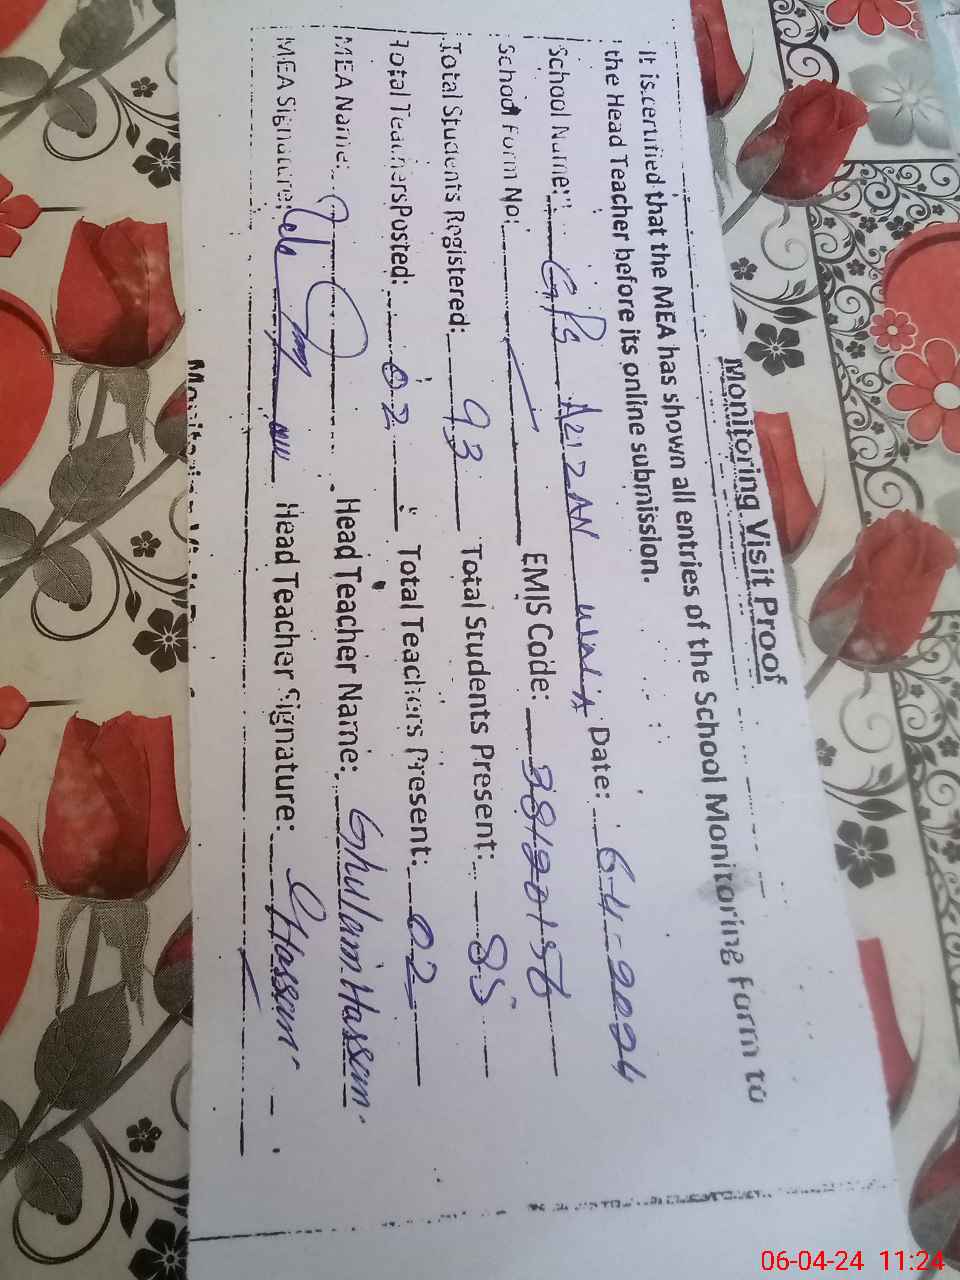 Monitoring Visit Proof
It is certified that the MEA has shown all entries of the School Monitoring Form to
the Head Teacher before its online submission.
School Name: GPS AZIZAN WALIA Date: 6-4-2024
School Form No: EMIS Code: 38120156
Total Students Registered: 93 Total Students Present: 85
Total Teachers Posted: 02 Total Teachers Present: 02
MEA Name: Head Teacher Name: Ghulam Hassan
MEA Signature: Head Teacher Signature: GHassan
06-04-24 11:24